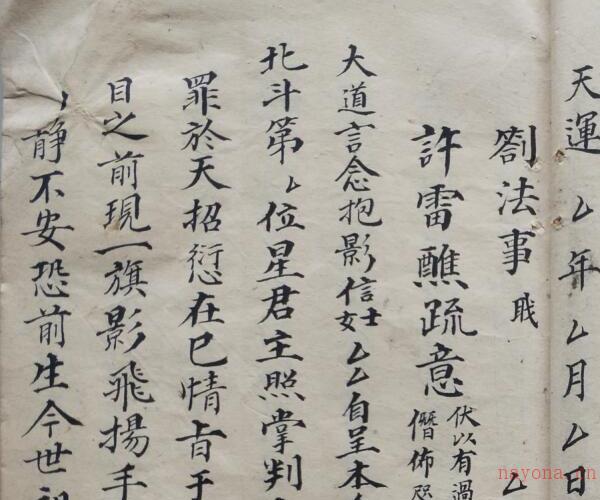 天運厶年厶月厶日
劄法事戝厶
許雷醮疏意
伏以有過
僭佈
大道言念抱影信士女厶厶自呈本
北斗第厶位星君主照掌判
罪於天招愆在巳情旨于
目之前現一旗影飛揚手
静不安恐前生今世
nayona.cn